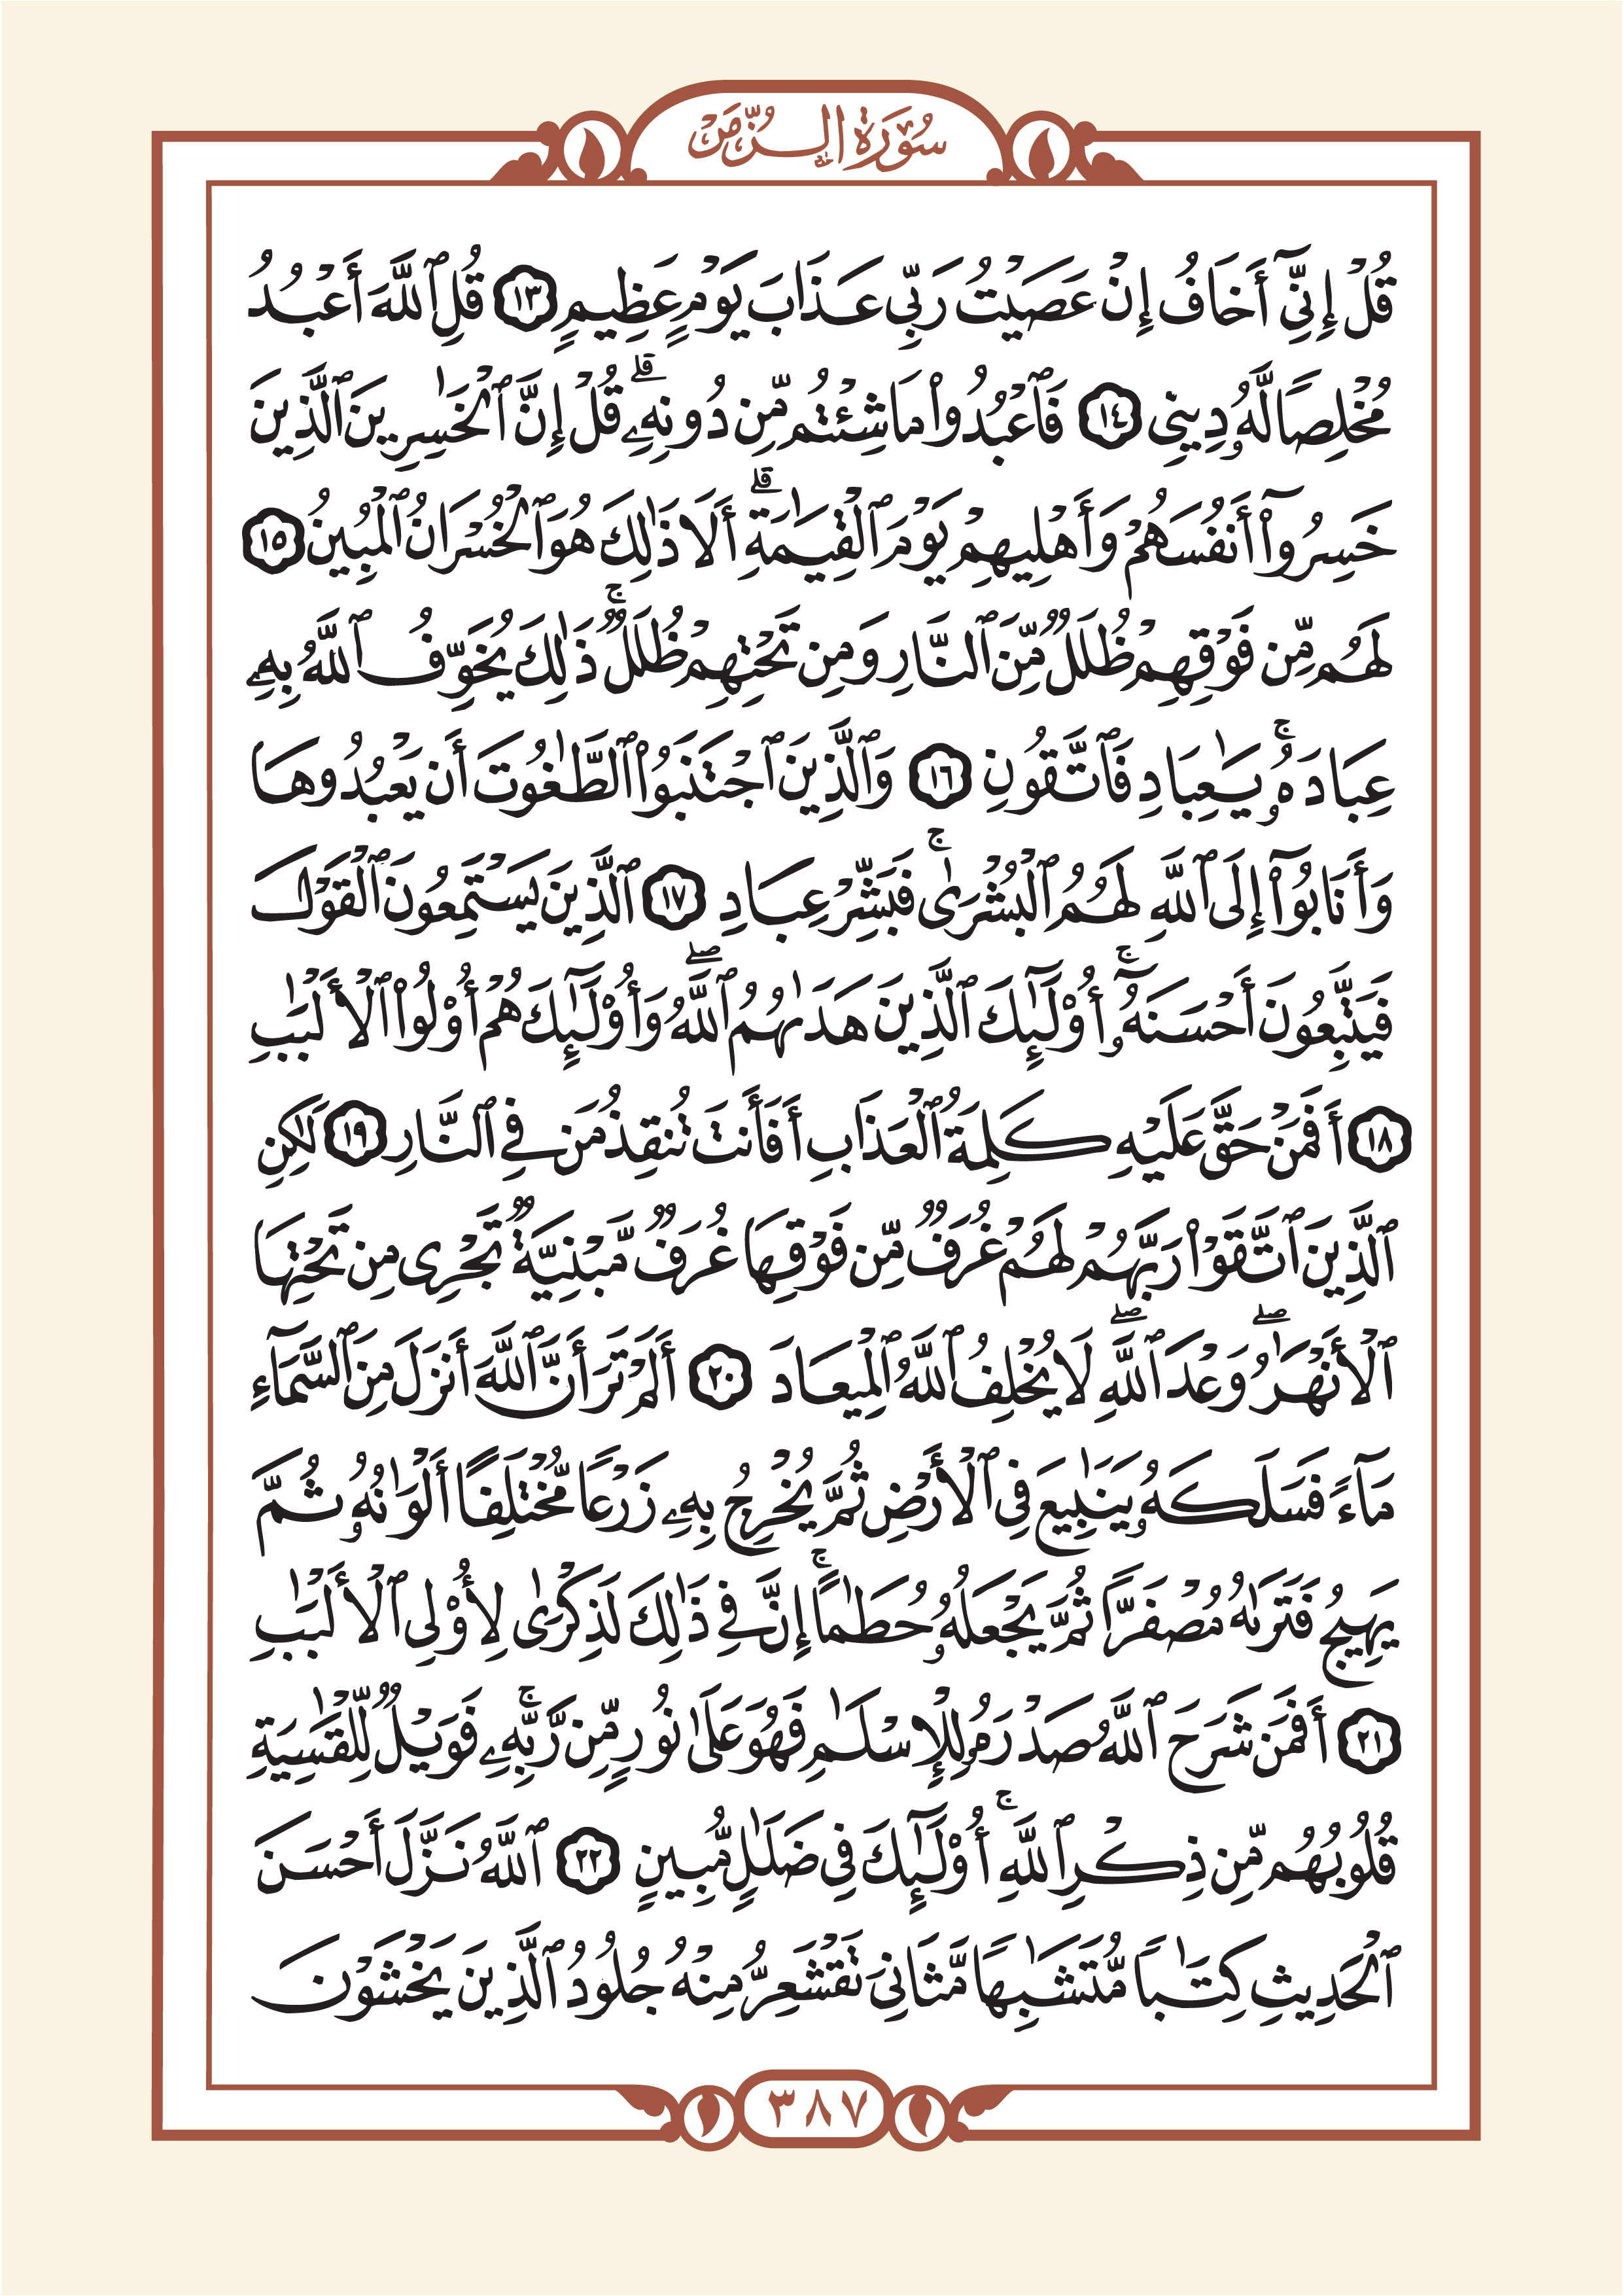 سُورَةُ الزُّمَرِ
قُلْ إِنِّىٓ أَخَافُ إِنْ عَصَيْتُ رَبِّى عَذَابَ يَوْمٍ عَظِيمٍ ١٣ قُلِ ٱللَّهَ أَعْبُدُ
مُخْلِصًا لَّهُۥ دِينِى ١٤ فَٱعْبُدُوا۟ مَا شِئْتُم مِّن دُونِهِۦ ۗ قُلْ إِنَّ ٱلْخَـٰسِرِينَ ٱلَّذِينَ
خَسِرُوٓا۟ أَنفُسَهُمْ وَأَهْلِيهِمْ يَوْمَ ٱلْقِيَـٰمَةِ ۗ أَلَا ذَٰلِكَ هُوَ ٱلْخُسْرَانُ ٱلْمُبِينُ ١٥
لَهُم مِّن فَوْقِهِمْ ظُلَلٌ مِّنَ ٱلنَّارِ وَمِن تَحْتِهِمْ ظُلَلٌ ۚ ذَٰلِكَ يُخَوِّفُ ٱللَّهُ بِهِۦ
عِبَادَهُۥ ۚ يَـٰعِبَادِ فَٱتَّقُونِ ١٦ وَٱلَّذِينَ ٱجْتَنَبُوا۟ ٱلطَّـٰغُوتَ أَن يَعْبُدُوهَا
وَأَنَابُوٓا۟ إِلَى ٱللَّهِ لَهُمُ ٱلْبُشْرَىٰ ۚ فَبَشِّرْ عِبَادِ ١٧ ٱلَّذِينَ يَسْتَمِعُونَ ٱلْقَوْلَ
فَيَتَّبِعُونَ أَحْسَنَهُۥٓ ۚ أُو۟لَـٰٓئِكَ ٱلَّذِينَ هَدَىٰهُمُ ٱللَّهُ ۖ وَأُو۟لَـٰٓئِكَ هُمْ أُو۟لُوا۟ ٱلْأَلْبَـٰبِ
١٨ أَفَمَنْ حَقَّ عَلَيْهِ كَلِمَةُ ٱلْعَذَابِ أَفَأَنتَ تُنقِذُ مَن فِى ٱلنَّارِ ١٩ لَـٰكِنِ
ٱلَّذِينَ ٱتَّقَوْا۟ رَبَّهُمْ لَهُمْ غُرَفٌ مِّن فَوْقِهَا غُرَفٌ مَّبْنِيَّةٌ تَجْرِى مِن تَحْتِهَا
ٱلْأَنْهَـٰرُ ۖ وَعْدَ ٱللَّهِ ۖ لَا يُخْلِفُ ٱللَّهُ ٱلْمِيعَادَ ٢٠ أَلَمْ تَرَ أَنَّ ٱللَّهَ أَنزَلَ مِنَ ٱلسَّمَآءِ
مَآءً فَسَلَكَهُۥ يَنَـٰبِيعَ فِى ٱلْأَرْضِ ثُمَّ يُخْرِجُ بِهِۦ زَرْعًا مُّخْتَلِفًا أَلْوَٰنُهُۥ ثُمَّ
يَهِيجُ فَتَرَىٰهُ مُصْفَرًّا ثُمَّ يَجْعَلُهُۥ حُطَـٰمًا ۚ إِنَّ فِى ذَٰلِكَ لَذِكْرَىٰ لِأُو۟لِى ٱلْأَلْبَـٰبِ
٢١ أَفَمَن شَرَحَ ٱللَّهُ صَدْرَهُۥ لِلْإِسْلَـٰمِ فَهُوَ عَلَىٰ نُورٍ مِّن رَّبِّهِۦ ۚ فَوَيْلٌ لِّلْقَـٰسِيَةِ
قُلُوبُهُم مِّن ذِكْرِ ٱللَّهِ ۚ أُو۟لَـٰٓئِكَ فِى ضَلَـٰلٍ مُّبِينٍ ٢٢ ٱللَّهُ نَزَّلَ أَحْسَنَ
ٱلْحَدِيثِ كِتَـٰبًا مُّتَشَـٰبِهًا مَّثَانِىَ تَقْشَعِرُّ مِنْهُ جُلُودُ ٱلَّذِينَ يَخْشَوْنَ
٣٨٧